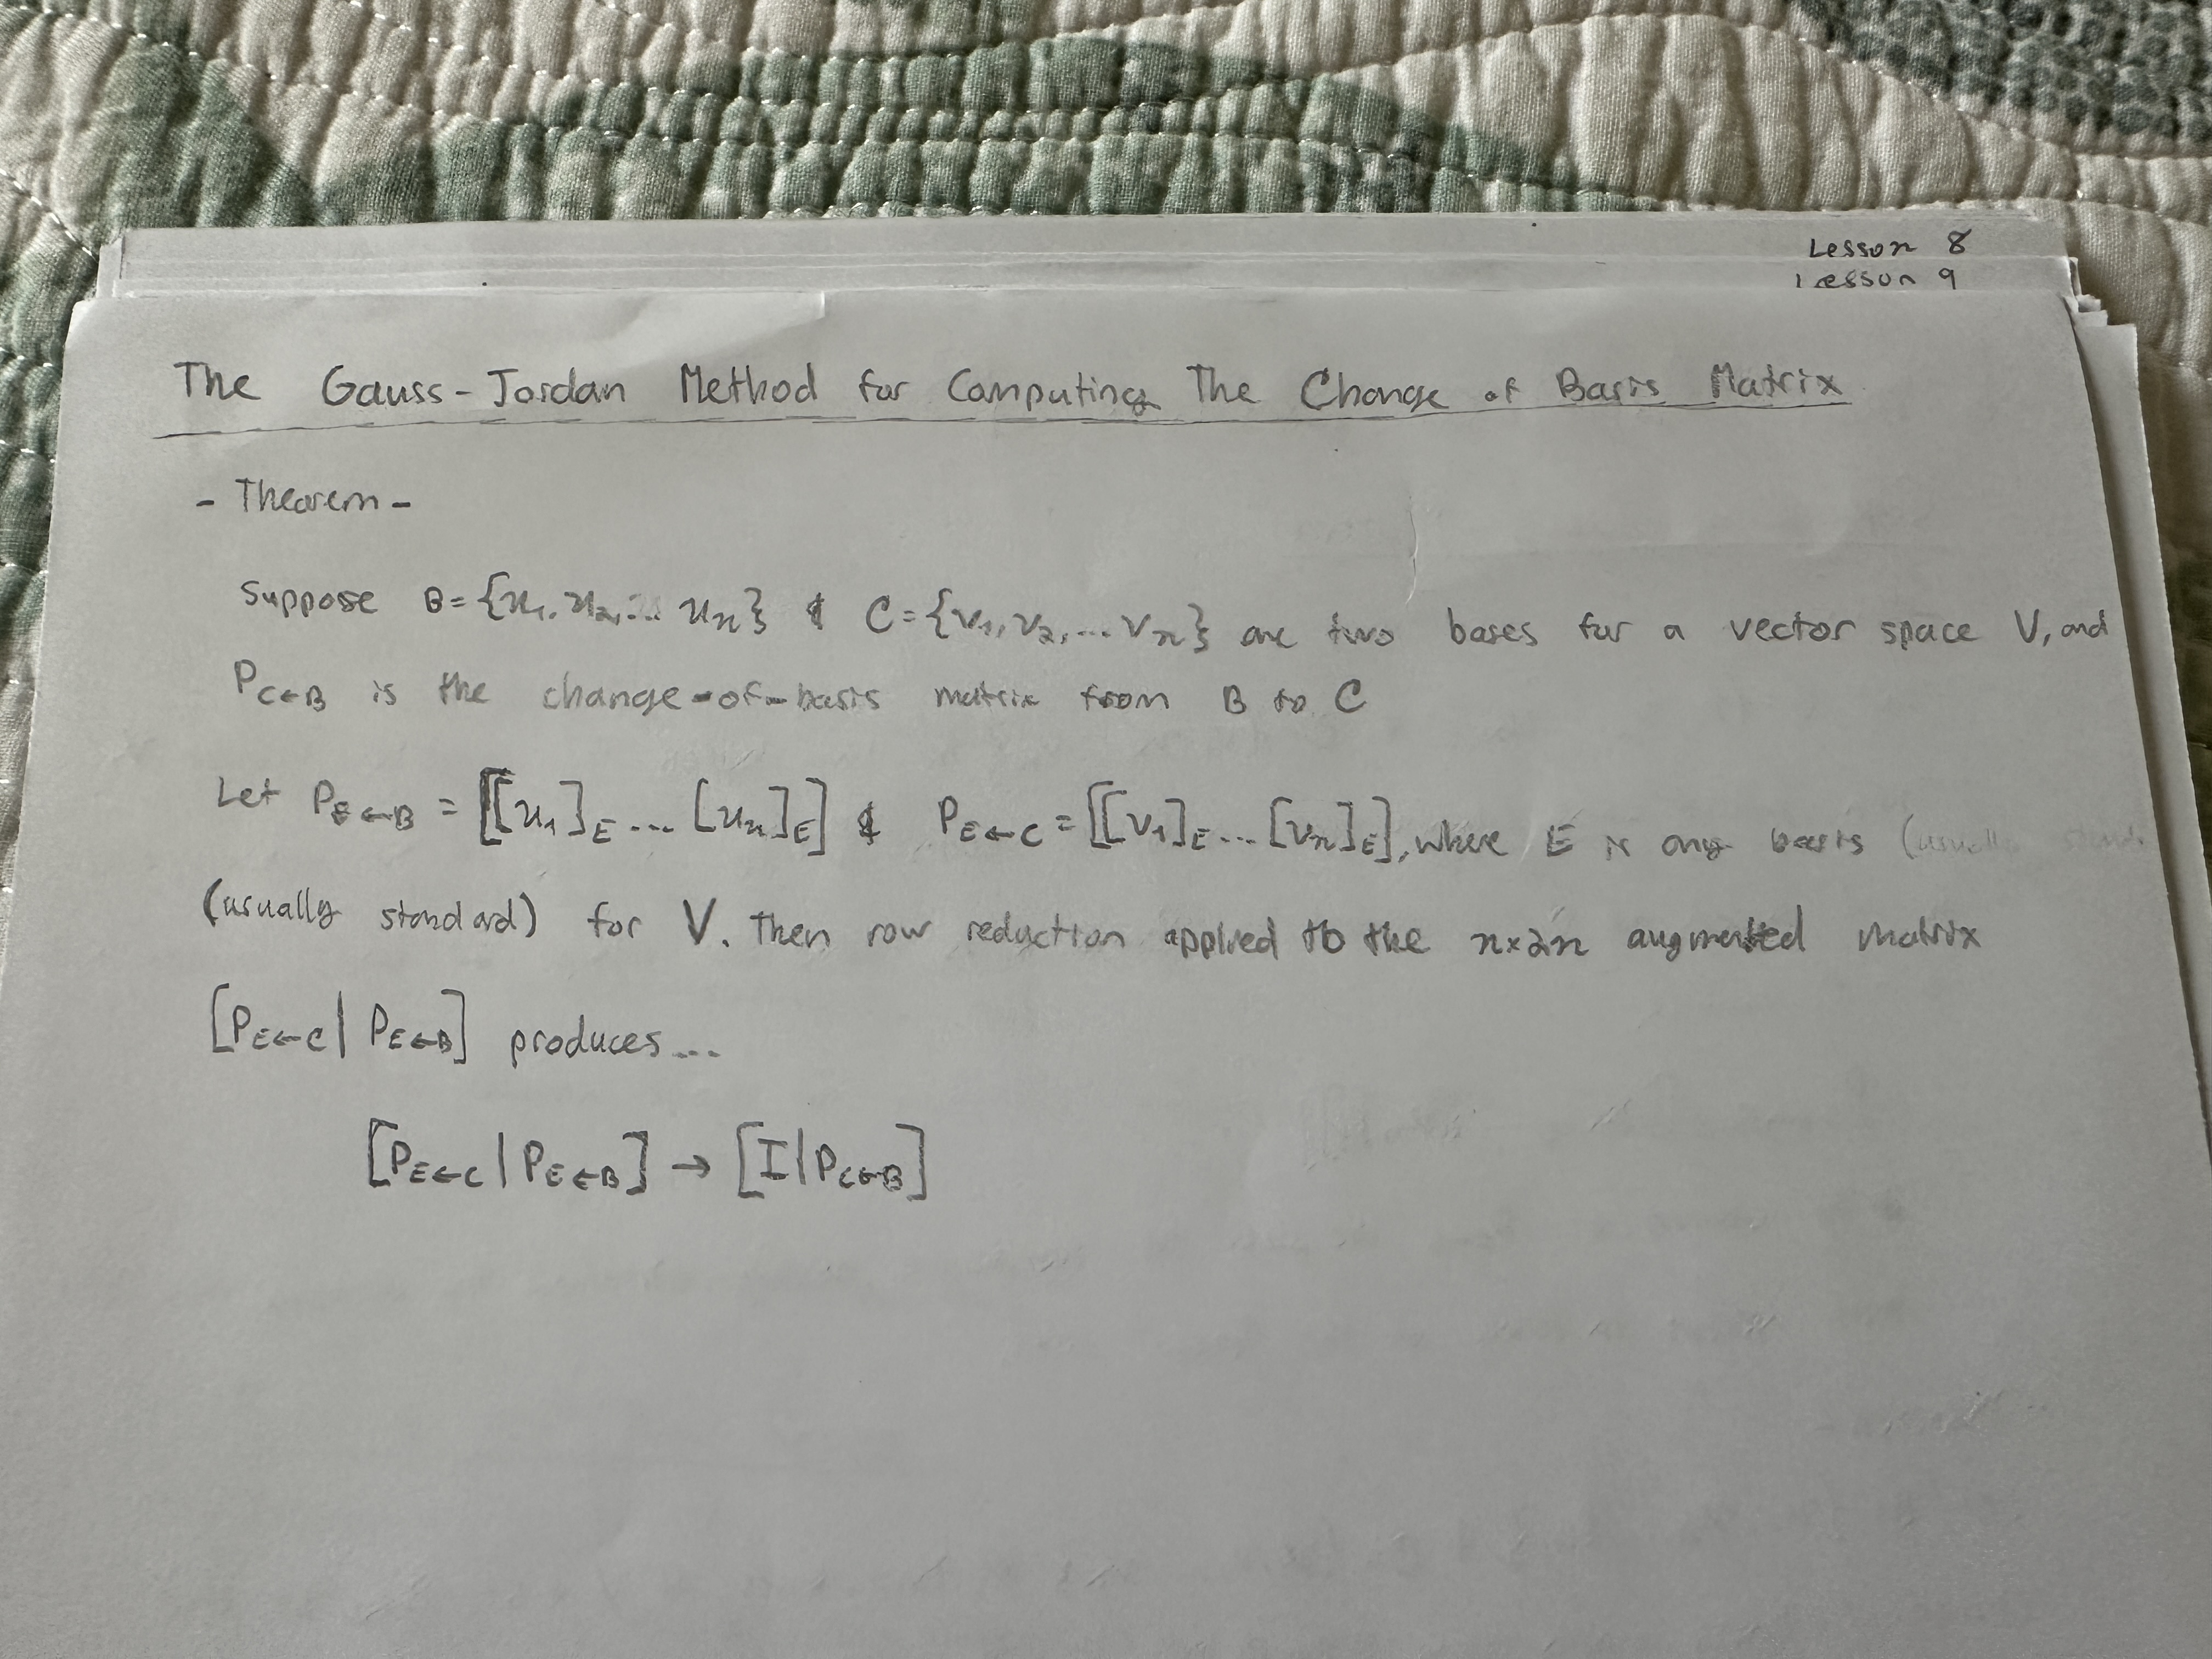 Lesson 8
Lesson 9
The Gauss-Jordan Method for Computing The Change of Basis Matrix
- Theorem -
Suppose B={u₁, u₂,... uₙ} & C={v₁, v₂,... vₙ} are two bases for a vector space V, and
P_C←B is the change-of-basis matrix from B to C
Let P_E←B = [[u₁]_E ... [uₙ]_E] & P_E←C = [[v₁]_E ... [vₙ]_E], where E is any basis (usually
(usually standard) for V. Then row reduction applied to the n×2n augmented matrix
[P_E←C | P_E←B] produces...
[P_E←C | P_E←B] → [I | P_C←B]